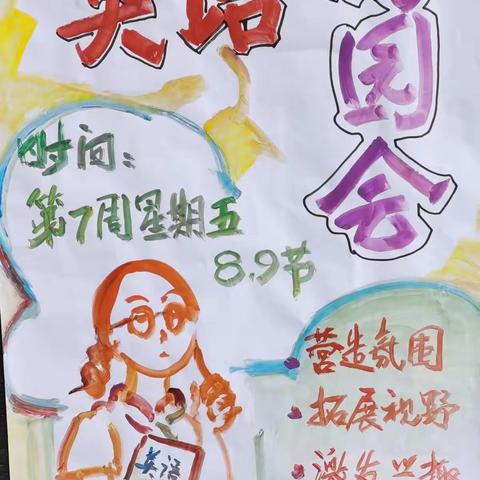 英语
园会
时间：
第7周星期五
8.9节
营造氛围
拓展视野
激发兴趣
英语